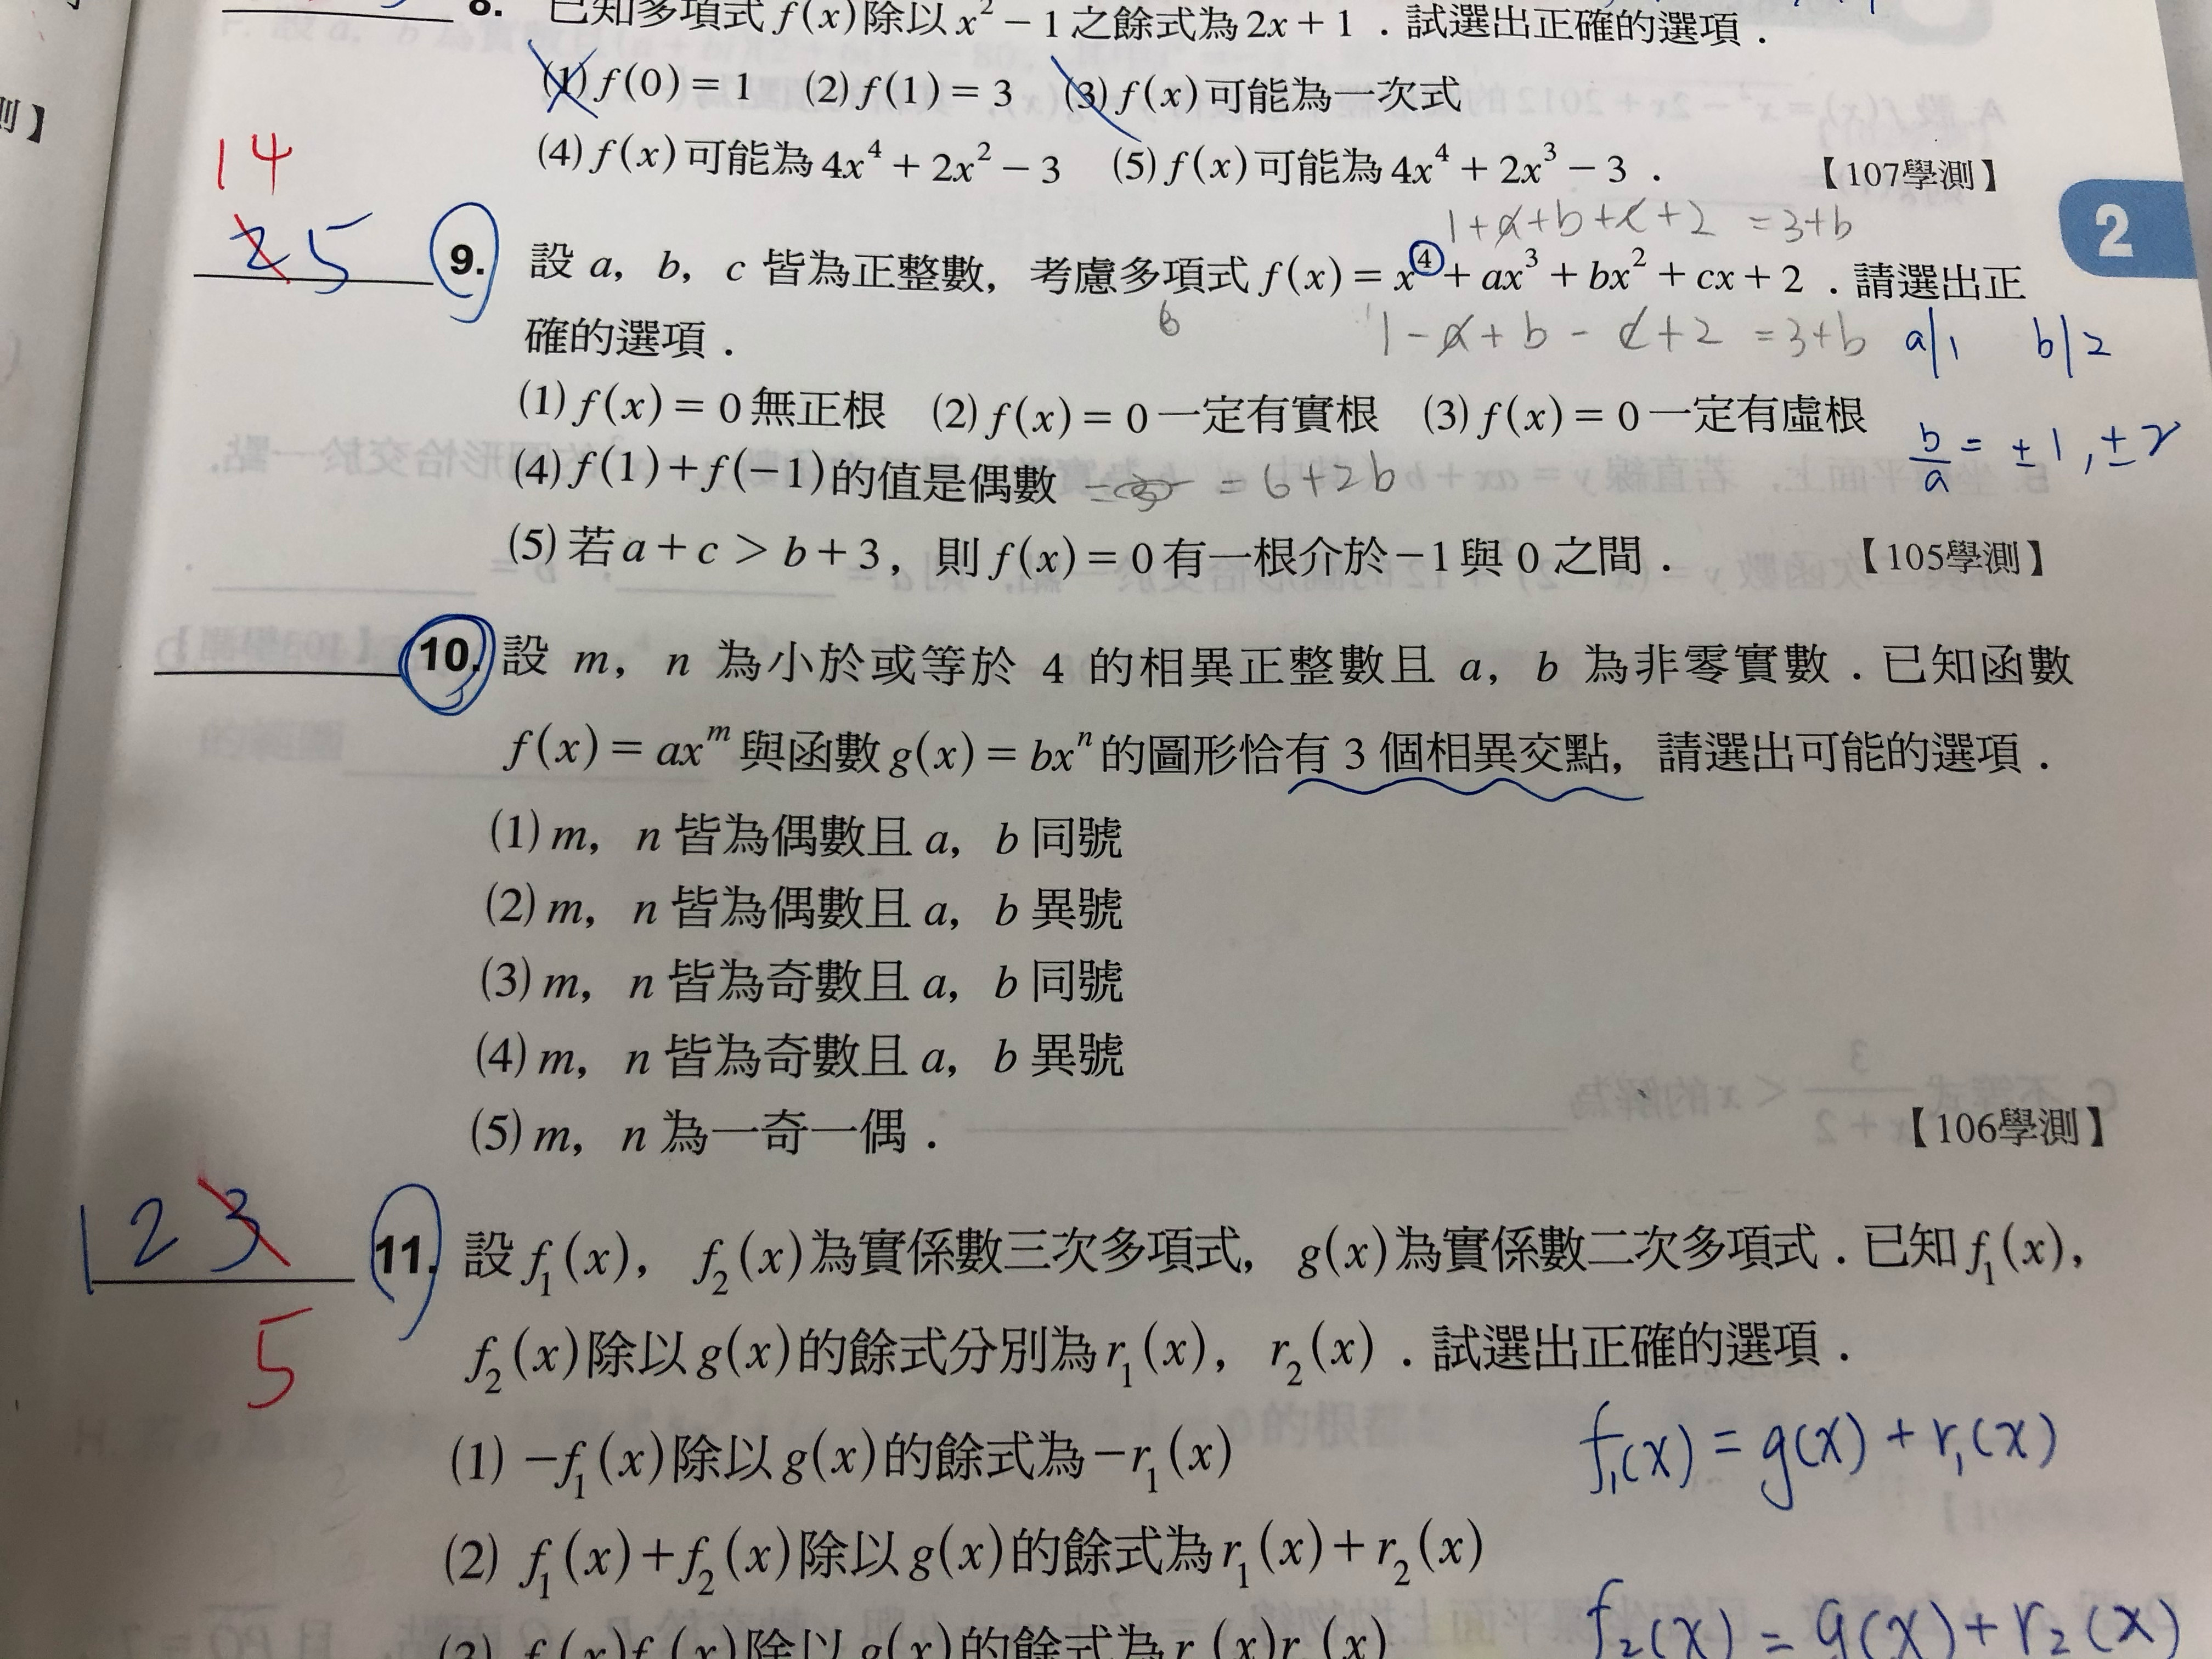 8. 已知多項式 f(x) 除以 x² − 1 之餘式為 2x + 1．試選出正確的選項．
(1) f(0) = 1 (2) f(1) = 3 (3) f(x) 可能為一次式
測】
(4) f(x) 可能為 4x⁴ + 2x² − 3 (5) f(x) 可能為 4x⁴ + 2x³ − 3．【107學測】
14
1+a+b+c+2 = 3+b
2
2 5
9. 設 a, b, c 皆為正整數, 考慮多項式 f(x) = x⁴ + ax³ + bx² + cx + 2．請選出正
確的選項．
6
1-a+b-c+2 = 3+b
a|1 b|2
(1) f(x) = 0 無正根 (2) f(x) = 0 一定有實根 (3) f(x) = 0 一定有虛根
b/a = ±1, ±2
(4) f(1) + f(−1) 的值是偶數
= 6+2b
(5) 若 a + c > b + 3, 則 f(x) = 0 有一根介於 −1 與 0 之間．【105學測】
10. 設 m, n 為小於或等於 4 的相異正整數且 a, b 為非零實數．已知函數
f(x) = axᵐ 與函數 g(x) = bxⁿ 的圖形恰有 3 個相異交點, 請選出可能的選項．
(1) m, n 皆為偶數且 a, b 同號
(2) m, n 皆為偶數且 a, b 異號
(3) m, n 皆為奇數且 a, b 同號
(4) m, n 皆為奇數且 a, b 異號
(5) m, n 為一奇一偶．【106學測】
1 2 3
5
11. 設 f₁(x), f₂(x) 為實係數三次多項式, g(x) 為實係數二次多項式．已知 f₁(x),
f₂(x) 除以 g(x) 的餘式分別為 r₁(x), r₂(x)．試選出正確的選項．
(1) −f₁(x) 除以 g(x) 的餘式為 −r₁(x)
f₁(x) = g(x) + r₁(x)
(2) f₁(x) + f₂(x) 除以 g(x) 的餘式為 r₁(x) + r₂(x)
f₂(x) = g(x) + r₂(x)
(3) f₁(x)f₂(x) 除以 g(x) 的餘式為 r₁(x)r₂(x)